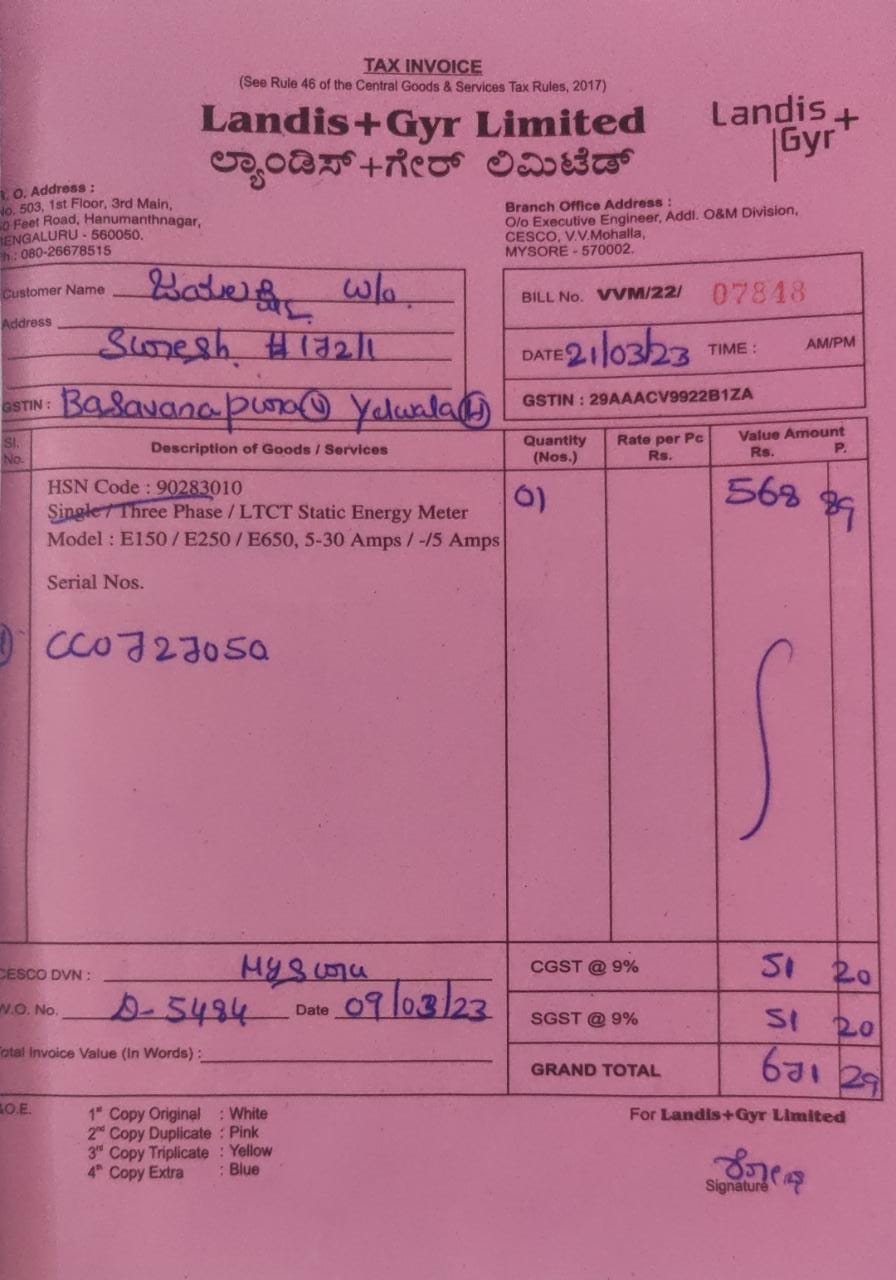 TAX INVOICE
(See Rule 46 of the Central Goods & Services Tax Rules, 2017)
Landis+Gyr Limited
ಲ್ಯಾಂಡಿಸ್+ಗೇರ್ ಲಿಮಿಟೆಡ್
Landis+
Gyr
. O. Address :
No. 503, 1st Floor, 3rd Main,
0 Feet Road, Hanumanthnagar,
ENGALURU - 560050.
h.: 080-26678515
Branch Office Address :
O/o Executive Engineer, Addl. O&M Division,
CESCO, V.V.Mohalla,
MYSORE - 570002.
Customer Name W/o.
Address
Suresh. #172/1
GSTIN : Basavanapura(V) Yelwala(H)
BILL No. VVM/22/ 07848
DATE 21/03/23 TIME : AM/PM
GSTIN : 29AAACV9922B1ZA
Sl. No. Description of Goods / Services Quantity (Nos.) Rate per Pc Rs. Value Amount Rs. P.
HSN Code : 90283010 01 568 89
Single / Three Phase / LTCT Static Energy Meter
Model : E150 / E250 / E650, 5-30 Amps / -/5 Amps
Serial Nos.
CC0727050
CESCO DVN : Mysuru
W.O. No. D-5484 Date 09/03/23
Total Invoice Value (In Words) :
CGST @ 9% 51 20
SGST @ 9% 51 20
GRAND TOTAL 671 29
&O.E.
1st Copy Original : White
2nd Copy Duplicate : Pink
3rd Copy Triplicate : Yellow
4th Copy Extra : Blue
For Landis+Gyr Limited
Signature